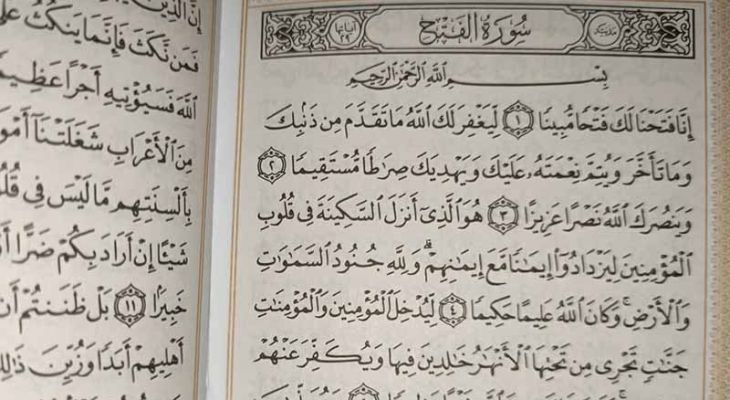 مَدَنِيَّة سُورَةُ الفَتْحِ آيَاتُهَا ٢٩
بِسْمِ ٱللَّهِ ٱلرَّحْمَٰنِ ٱلرَّحِيمِ
إِنَّا فَتَحْنَا لَكَ فَتْحًا مُّبِينًا ١ لِّيَغْفِرَ لَكَ ٱللَّهُ مَا تَقَدَّمَ مِن ذَنۢبِكَ
وَمَا تَأَخَّرَ وَيُتِمَّ نِعْمَتَهُۥ عَلَيْكَ وَيَهْدِيَكَ صِرَٰطًا مُّسْتَقِيمًا ٢
وَيَنصُرَكَ ٱللَّهُ نَصْرًا عَزِيزًا ٣ هُوَ ٱلَّذِىٓ أَنزَلَ ٱلسَّكِينَةَ فِى قُلُوبِ
ٱلْمُؤْمِنِينَ لِيَزْدَادُوٓا۟ إِيمَٰنًا مَّعَ إِيمَٰنِهِمْ ۗ وَلِلَّهِ جُنُودُ ٱلسَّمَٰوَٰتِ
وَٱلْأَرْضِ ۚ وَكَانَ ٱللَّهُ عَلِيمًا حَكِيمًا ٤ لِّيُدْخِلَ ٱلْمُؤْمِنِينَ وَٱلْمُؤْمِنَٰتِ
جَنَّٰتٍ تَجْرِى مِن تَحْتِهَا ٱلْأَنْهَٰرُ خَٰلِدِينَ فِيهَا وَيُكَفِّرَ عَنْهُمْ
إِنَّ ٱلَّذِينَ
فَمَن نَّكَثَ فَإِنَّمَا يَنكُثُ عَلَىٰ
ٱللَّهَ فَسَيُؤْتِيهِ أَجْرًا عَظِيمًا
مِنَ ٱلْأَعْرَابِ شَغَلَتْنَآ
بِأَلْسِنَتِهِم مَّا لَيْسَ فِى
شَيْـًٔا إِنْ أَرَادَ بِكُمْ ضَرًّا
خَبِيرًا ١١ بَلْ ظَنَنتُمْ أَن
أَهْلِيهِمْ أَبَدًا وَزُيِّنَ ذَٰلِكَ